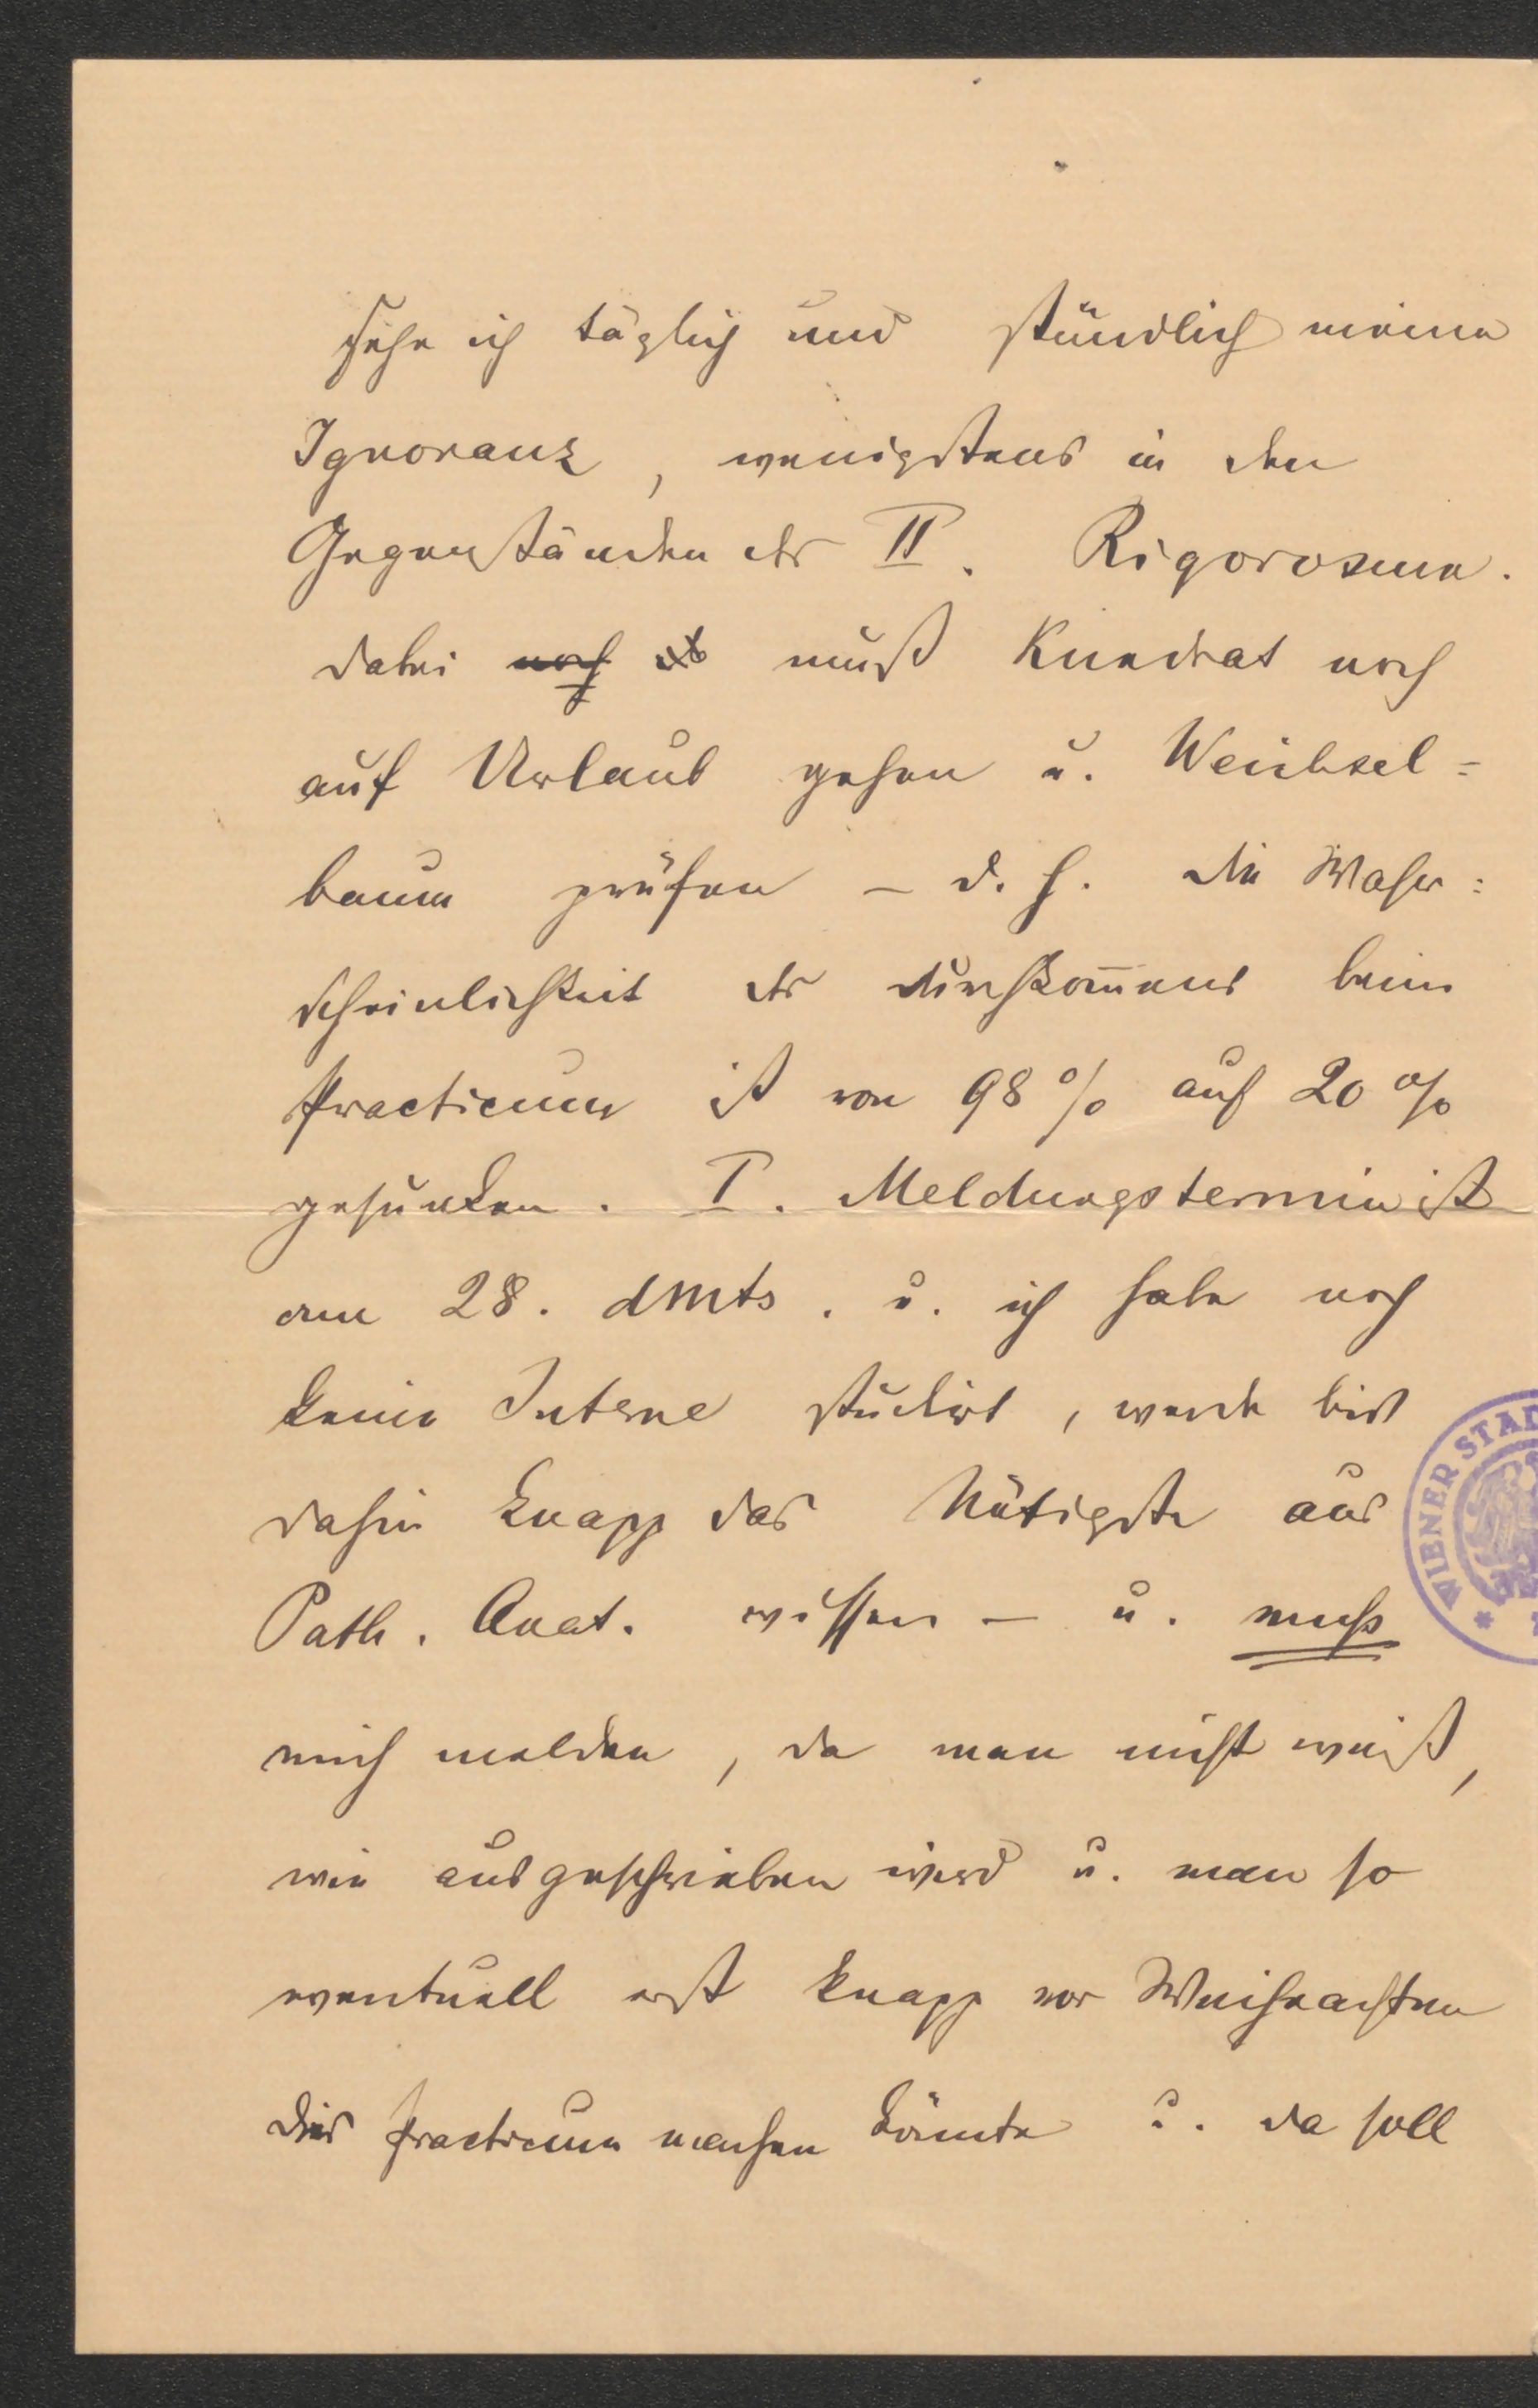 sehe ich täglich und stündlich meine
Ignoranz, wenigstens in den
Gegenständen des II. Rigorosums.
Dabei noch muß Kundrat noch
auf Urlaub gehen u. Weichsel=
baum prüfen – d. h. die Wahr=
scheinlichkeit des Durchkom̄ens beim
Practicum ist von 98% auf 20%
gesunken. I. Meldungstermin ist
am 28. dmts. u. ich habe noch
keine Interne studirt, werde bis
dahin knapp das Nötigste aus
Path. Anat. wissen – u. muss
mich melden, da man nicht weiß,
wie ausgeschrieben wird u. man so
eventuell erst knapp vor Weihnachten
das Practicum machen könnte u. da soll
WIENER STAD